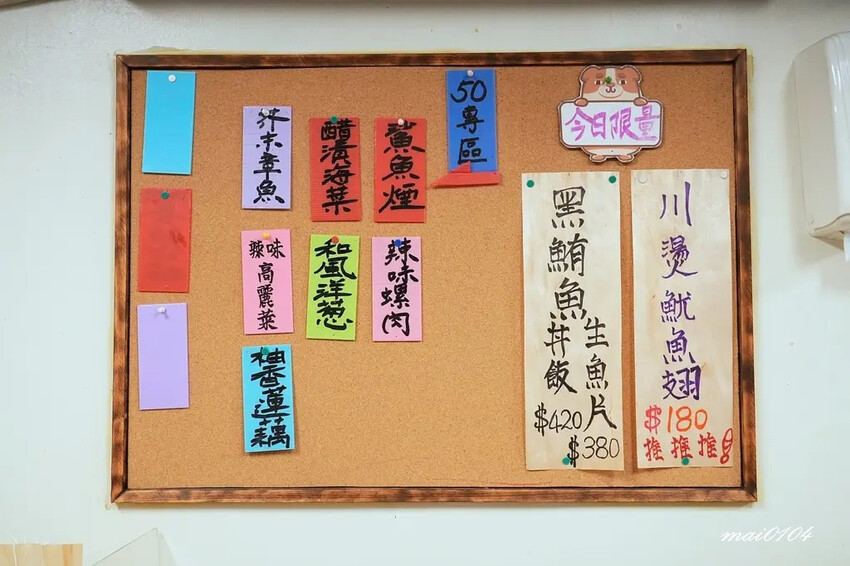 50專區
鯊魚煙
醋漬海菜
芥末章魚
辣味螺肉
和風洋蔥
辣味高麗菜
柚香蓮藕
今日限量
黑鮪魚
丼飯 $420
生魚片 $380
川燙魷魚翅
$180
推推推!
mai0104